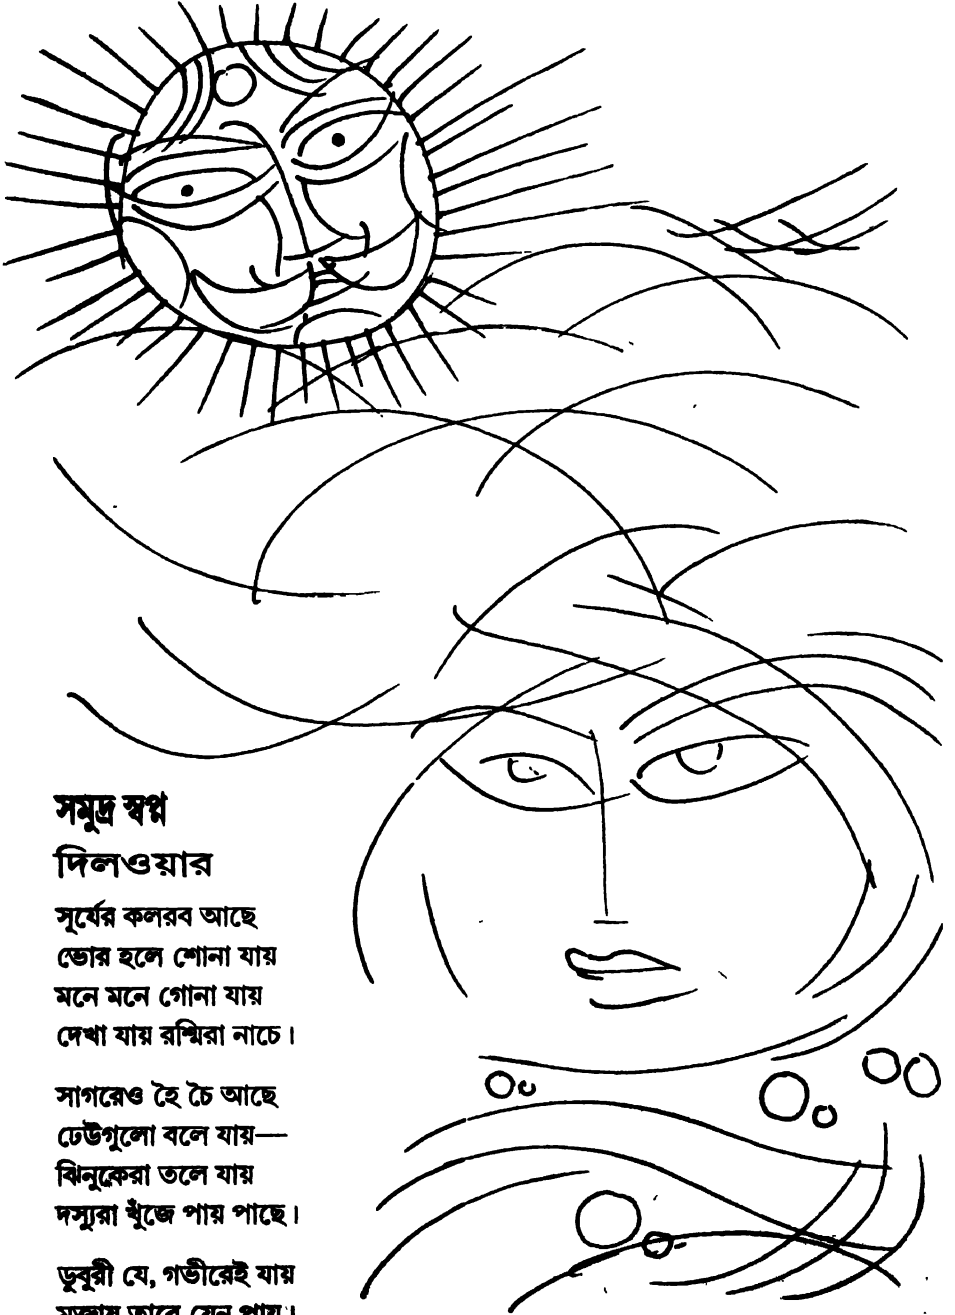 সমুদ্র স্বপ্ন
দিলওয়ার
সূর্যের কলরব আছে
ভোর হলে শোনা যায়
মনে মনে গোনা যায়
দেখা যায় রশ্মিরা নাচে।
সাগরেও হৈ চৈ আছে
ঢেউগুলো বলে যায়—
ঝিনুকেরা তলে যায়
দস্যুরা খুঁজে পায় পাছে।
ডুবুরী যে, গভীরেই যায়
তারে যেন পায়।